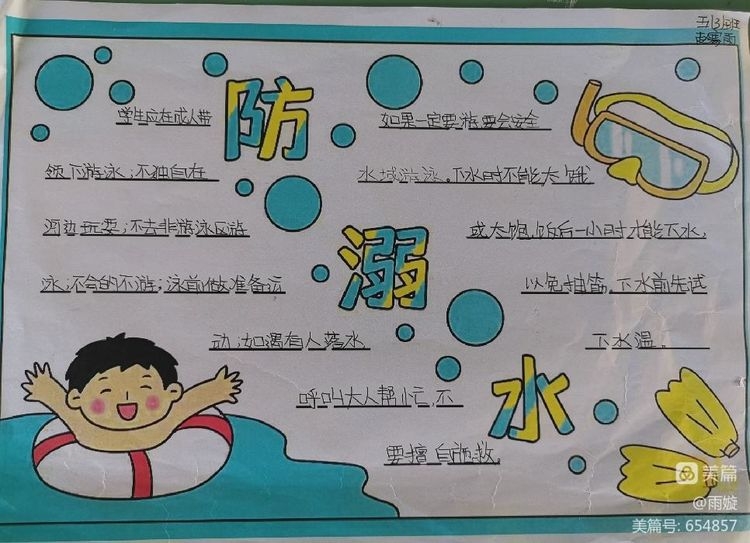 五(3)班
防溺水
学生应在成人带
领下游泳;不独自在
河边玩耍;不去非游泳区游
泳;不会的不游;泳前做准备运
动;如遇有人落水
呼叫大人帮忙,不
要擅自施救。
如果一定要游要会安全
水域游泳。下水时不能太饿
或太饱,饭后一小时才能下水,
以免抽筋。下水前先试
下水温。
美篇
@雨嫙
美篇号: 654857